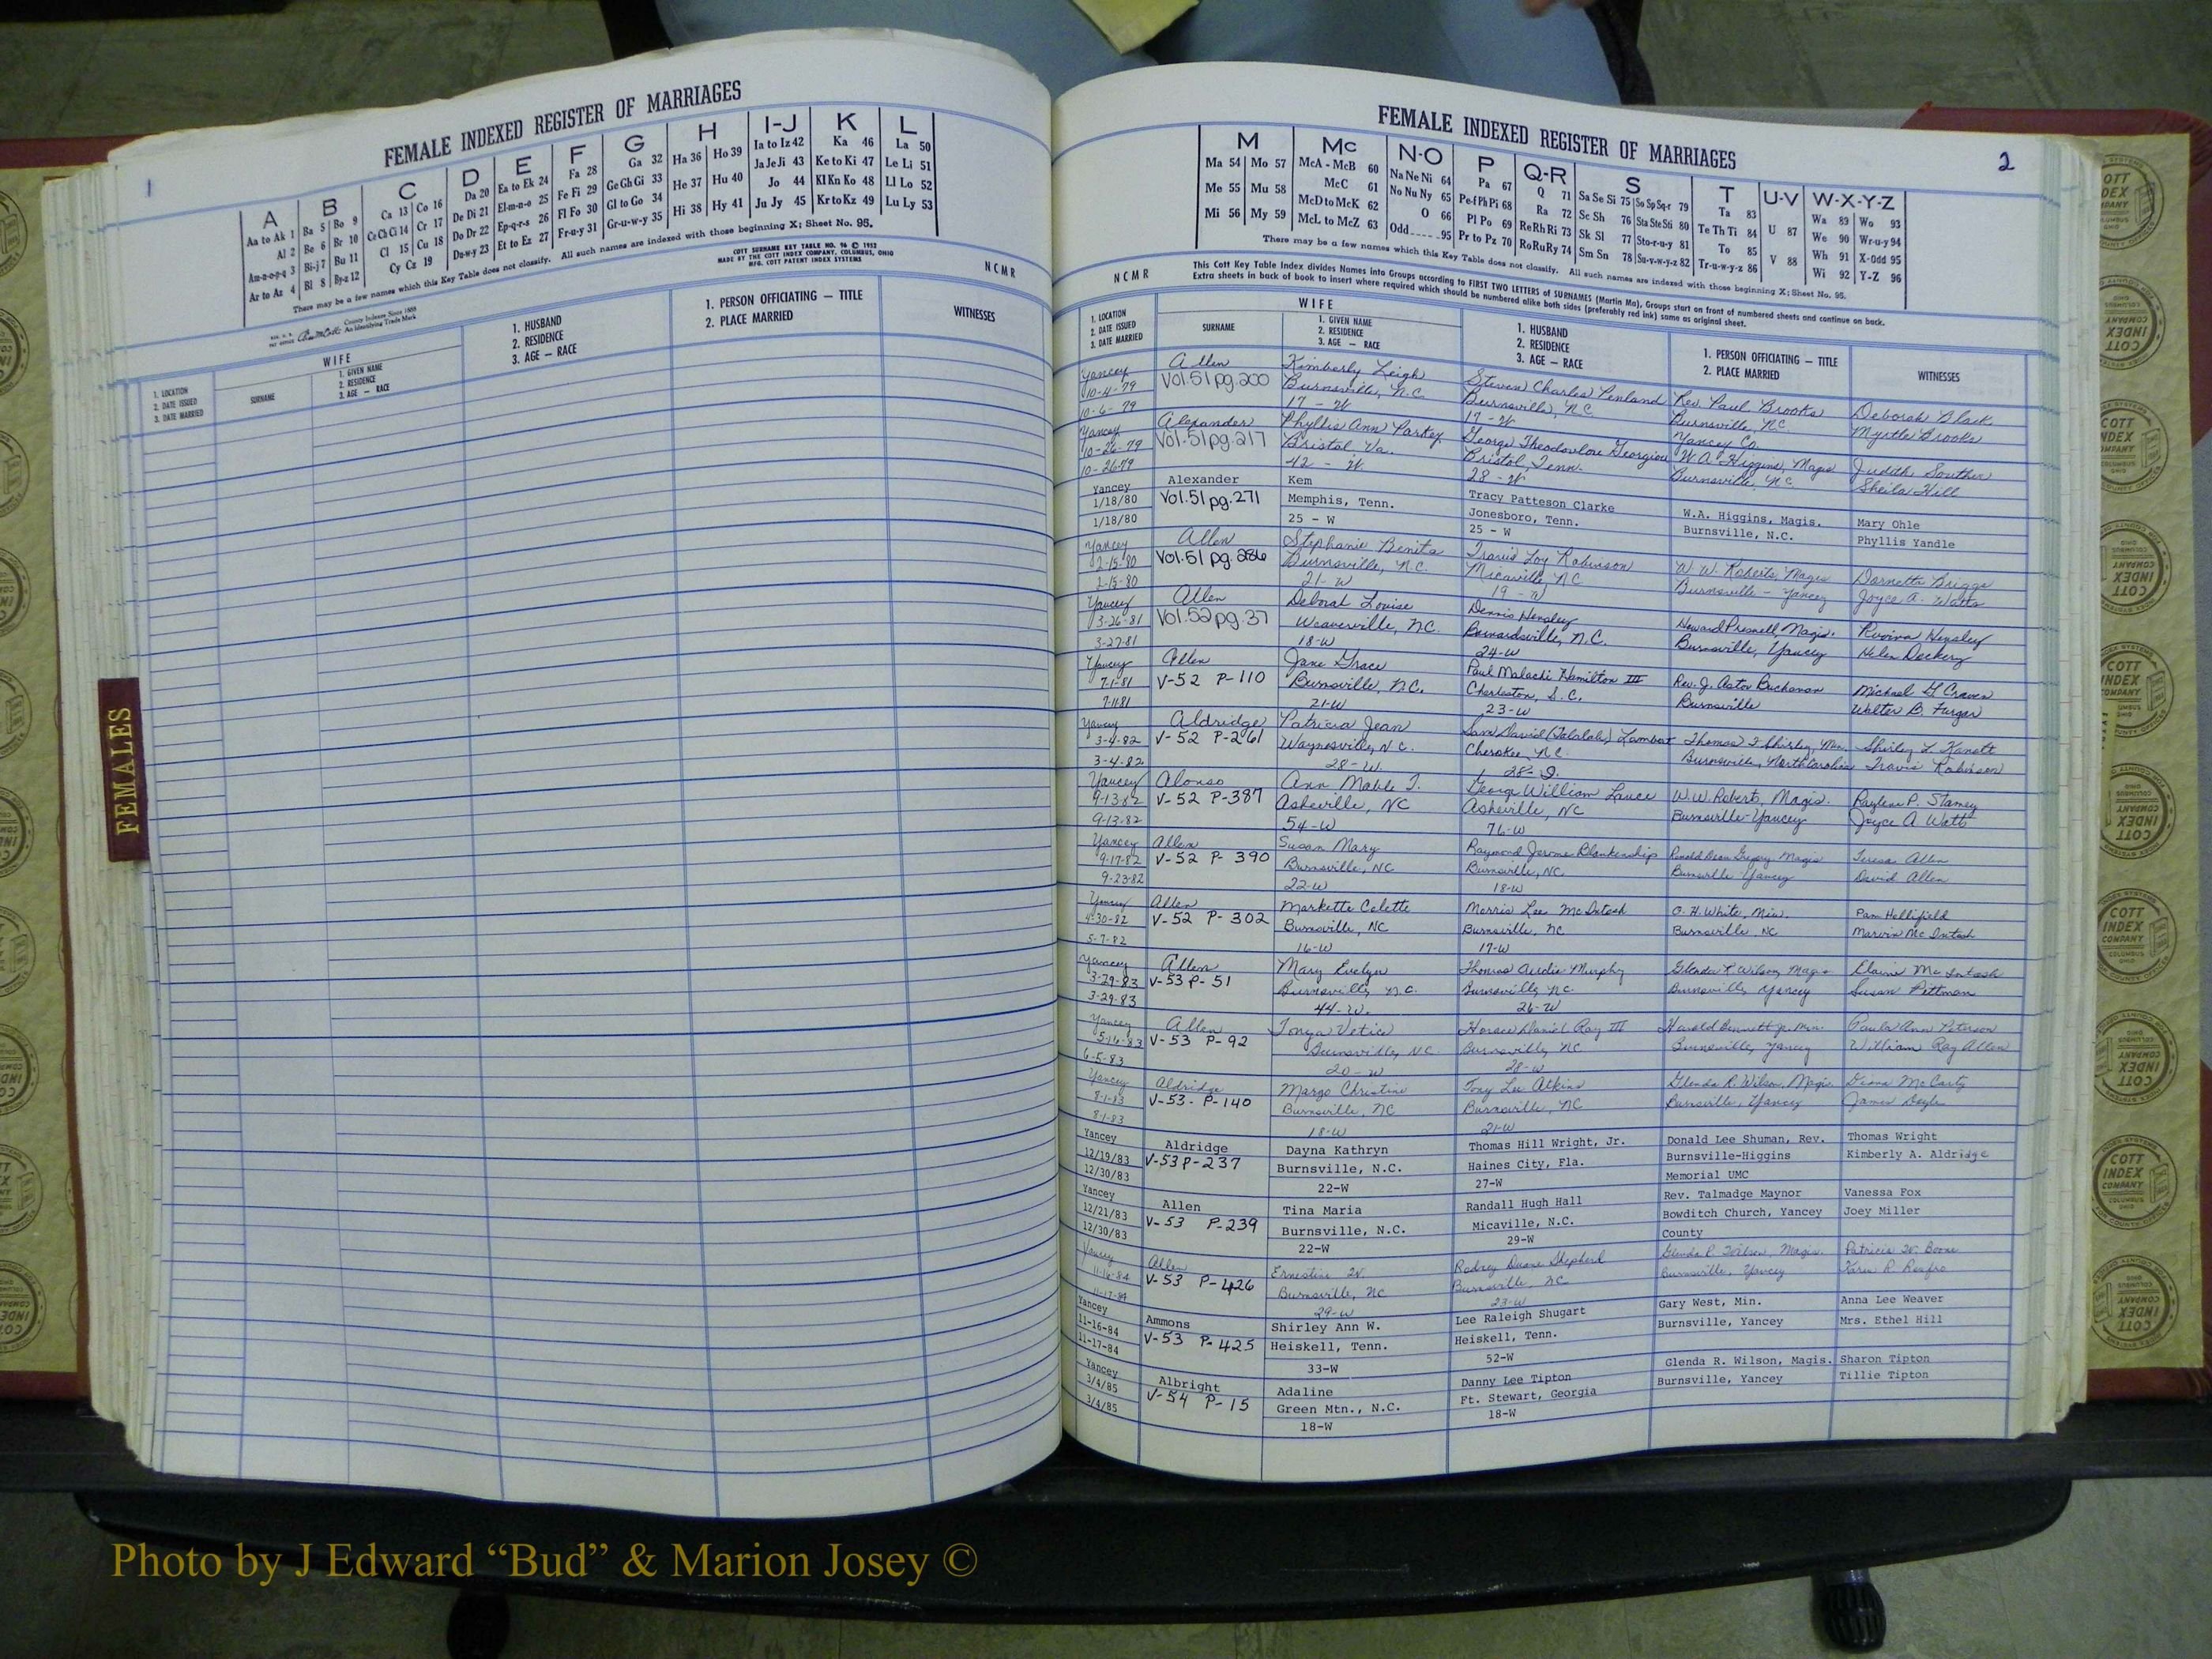 FEMALE INDEXED REGISTER OF MARRIAGES
1
A B C D E F G H I-J K L
Aa to Ak 1 Ba 5 Bo 9 Ca 13 Co 16 Da 20 Ea to Ek 24 Fa 28 Ga 32 Ha 36 Ho 39 Ia to Iz 42 Ka 46 La 50
Al 2 Be 6 Br 10 Ce Ch Ci 14 Cr 17 De Di 21 El-m-n-o 25 Fe Fi 29 Ge Gh Gi 33 He 37 Hu 40 Ja Je Ji 43 Ke to Ki 47 Le Li 51
Am-n-o-p-q 3 Bi-j 7 Bu 11 Cl 15 Cu 18 Do Dr 22 Ep-q-r-s 26 Fl Fo 30 Gl to Go 34 Hi 38 Hy 41 Jo 44 Kl Kn Ko 48 Ll Lo 52
Ar to Az 4 Bl 8 By-z 12 Cy Cz 19 Du-w-y 23 Et to Ez 27 Fr-u-y 31 Gr-u-w-y 35 Ju Jy 45 Kr to Kz 49 Lu Ly 53
There may be a few names which this Key Table does not classify. All such names are indexed with those beginning X; Sheet No. 95.
COTT SURNAME KEY TABLE NO. 96 © 1952
MADE BY THE COTT INDEX COMPANY, COLUMBUS, OHIO
MFG. COTT PATENT INDEX SYSTEMS
County Indexes Since 1888
An Identifying Trade Mark
NCMR
1. LOCATION
2. DATE ISSUED
3. DATE MARRIED
WIFE
SURNAME
1. GIVEN NAME
2. RESIDENCE
3. AGE — RACE
1. HUSBAND
2. RESIDENCE
3. AGE — RACE
1. PERSON OFFICIATING — TITLE
2. PLACE MARRIED
WITNESSES
FEMALES
FEMALE INDEXED REGISTER OF MARRIAGES
2
M Mc N-O P Q-R S T U-V W-X-Y-Z
Ma 54 Mo 57 McA - McB 60 Na Ne Ni 64 Pa 67 Q 71 Sa Se Si 75 So Sp Sq-r 79 Ta 83 U 87 Wa 89 Wo 93
Me 55 Mu 58 McC 61 No Nu Ny 65 Pe-f Ph Pi 68 Ra 72 Sc Sh 76 Sta Ste Sti 80 Te Th Ti 84 V 88 We 90 Wr-u-y 94
Mi 56 My 59 McD to McK 62 O 66 Pl Po 69 Re Rh Ri 73 Sk Sl 77 Sto-r-u-y 81 To 85 Wh 91 X-Odd 95
McL to McZ 63 Odd 95 Pr to Pz 70 Ro Ru Ry 74 Sm Sn 78 Su-v-w-y-z 82 Tr-u-w-y-z 86 Wi 92 Y-Z 96
There may be a few names which this Key Table does not classify. All such names are indexed with those beginning X; Sheet No. 95.
NCMR
This Cott Key Table Index divides Names into Groups according to FIRST TWO LETTERS of SURNAMES (Martin Ma), Groups start on front of numbered sheets and continue on back.
Extra sheets in back of book to insert where required which should be numbered alike both sides (preferably red ink) same as original sheet.
1. LOCATION
2. DATE ISSUED
3. DATE MARRIED
WIFE
SURNAME
1. GIVEN NAME
2. RESIDENCE
3. AGE — RACE
1. HUSBAND
2. RESIDENCE
3. AGE — RACE
1. PERSON OFFICIATING — TITLE
2. PLACE MARRIED
WITNESSES
Yancey Allen Kimberly Leigh Steven Charles Penland Rev. Paul Brooks Deborah Black
10-4-79 Vol.51 pg.200 Burnsville, N.C. Burnsville, N.C. Burnsville, N.C. Myrtle Brooks
10-6-79 17 - W 17 - W Yancey Co.
Yancey Alexander Phyllis Ann Parkey George Georgiou W.A. Higgins, Magis Judith Souther
10-26-79 Vol.51 pg.217 Bristol, Va. Bristol, Tenn. Burnsville, N.C. Sheila Hill
10-26-79 42 - W 28 - W
Yancey Alexander Kem Tracy Patteson Clarke W.A. Higgins, Magis. Mary Ohle
1/18/80 Vol.51 pg.271 Memphis, Tenn. Jonesboro, Tenn. Burnsville, N.C. Phyllis Yandle
1/18/80 25 - W 25 - W
Yancey Allen Stephanie Benita Travis Loy Robinson W.W. Roberts, Magis Dornetta Briggs
2-15-80 Vol.51 pg.286 Burnsville, N.C. Micaville, NC Burnsville - Yancey Joyce A. Watts
2-15-80 21-W 19 - W
Yancey Allen Deborah Louise Dennis Hensley Howard Presnell, Magis. Hensley
3-26-81 Vol.52 pg.37 Weaverville, N.C. Barnardsville, N.C. Burnsville, Yancey Helen Dockery
3-27-81 18-W 24-W
Yancey Allen Jane Grace Paul Malachi Hamilton III Rev. J. Astor Buchanan Michael G Craven
7-1-81 V-52 P-110 Burnsville, N.C. Charleston, S.C. Burnsville Walter B.
7-11-81 21-W 23-W
Yancey Aldridge Patricia Jean Sam David Lambert Thomas F Shirley, Min. Shirley L
3-4-82 V-52 P-261 Waynesville, N.C. Cherokee, N.C. Burnsville, North Carolina Travis Robinson
3-4-82 28-W. 28-I.
Yancey Alonso Ann Mable T. George William Lance W.W. Roberts, Magis. Raylene P. Stamey
9-13-82 V-52 P-387 Asheville, NC Asheville, NC Burnsville-Yancey Joyce A Watts
9-13-82 54-W 76-W
Yancey Allen Susan Mary Raymond Jerome Blankenship Ronald Dean Gregory Magis Teresa Allen
9-17-82 V-52 P-390 Burnsville, NC Burnsville, NC Burnsville Yancey David Allen
9-23-82 22-W 18-W
Yancey Allen Markette Colette Morris Lee McIntosh O.H. White, Min. Pam Hollifield
4-30-82 V-52 P-302 Burnsville, NC Burnsville, NC Burnsville, NC Marvin McIntosh
5-7-82 16-W 17-W
Yancey Allen Mary Evelyn Thomas Murphy Glenda R Wilson, Magis Elaine McIntosh
3-29-83 V-53 P-51 Burnsville, N.C. Burnsville, N.C. Burnsville, Yancey Susan Pittman
3-29-83 44-W. 26-W
Yancey Allen Tonya Vetice Horace Daniel Ray III Harold Bennett Jr. Min. Paula Ann Peterson
5-16-83 V-53 P-92 Burnsville, N.C. Burnsville, NC Burnsville, Yancey William Ray Allen
6-5-83 20-W 28-W
Yancey Aldridge Margo Christine Tony Lee Atkins Glenda R. Wilson, Magis. Diana McCarty
8-1-83 V-53- P-140 Burnsville, NC Burnsville, NC Burnsville, Yancey James Doyle
8-1-83 18-W 21-W
Yancey Aldridge Dayna Kathryn Thomas Hill Wright, Jr. Donald Lee Shuman, Rev. Thomas Wright
12/19/83 V-53 P-237 Burnsville, N.C. Haines City, Fla. Burnsville-Higgins Kimberly A. Aldridge
12/30/83 22-W 27-W Memorial UMC
Yancey Allen Tina Maria Randall Hugh Hall Rev. Talmadge Maynor Vanessa Fox
12/21/83 V-53 P-239 Burnsville, N.C. Micaville, N.C. Bowditch Church, Yancey Joey Miller
12/30/83 22-W 29-W County
Yancey Allen Ernestine W. Rodney Duane Shepherd Glenda R. Wilson, Magis. Patricia W. Boone
11-16-84 V-53 P-426 Burnsville, NC Burnsville, NC Burnsville, Yancey Karen R. Renfro
11-17-84 29-W 23-W
Yancey Ammons Shirley Ann W. Lee Raleigh Shugart Gary West, Min. Anna Lee Weaver
11-16-84 V-53 P-425 Heiskell, Tenn. Heiskell, Tenn. Burnsville, Yancey Mrs. Ethel Hill
11-17-84 33-W 52-W
Yancey Albright Adaline Danny Lee Tipton Glenda R. Wilson, Magis. Sharon Tipton
3/4/85 V-54 P-15 Green Mtn., N.C. Ft. Stewart, Georgia Burnsville, Yancey Tillie Tipton
3/4/85 18-W 18-W
Photo by J Edward “Bud” & Marion Josey ©